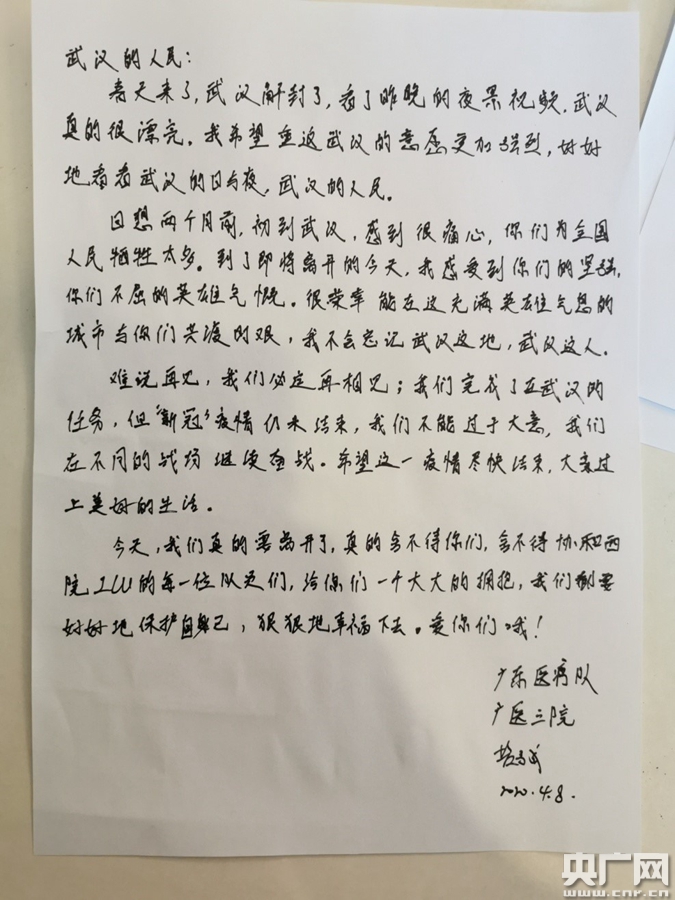 武汉的人民：
春天来了，武汉解封了，看了昨晚的夜景视频，武汉
真的很漂亮。我希望重返武汉的意愿更加强烈，好好
地看看武汉的日与夜，武汉的人民。
回想两个月前，初到武汉，感到很痛心，你们为全国
人民牺牲太多。到了即将离开的今天，我感受到你们的坚强，
你们不屈的英雄气慨。很荣幸能在这充满英雄气息的
城市与你们共渡时艰，我不会忘记武汉这地，武汉这人。
难说再见，我们必定再相见；我们完成了在武汉的
任务，但“新冠”疫情仍未结束，我们不能过于大意，我们
在不同的战场继续奋战。希望这一疫情尽快结束，大家过
上美好的生活。
今天，我们真的要离开了，真的舍不得你们，舍不得协和西
院ICU的每一位队友们，给你们一个大大的拥抱，我们都要
好好地保护自己，狠狠地幸福下去。爱你们哦！
广东医疗队
广医三院
2020.4.8.
央广网
www.cnr.cn